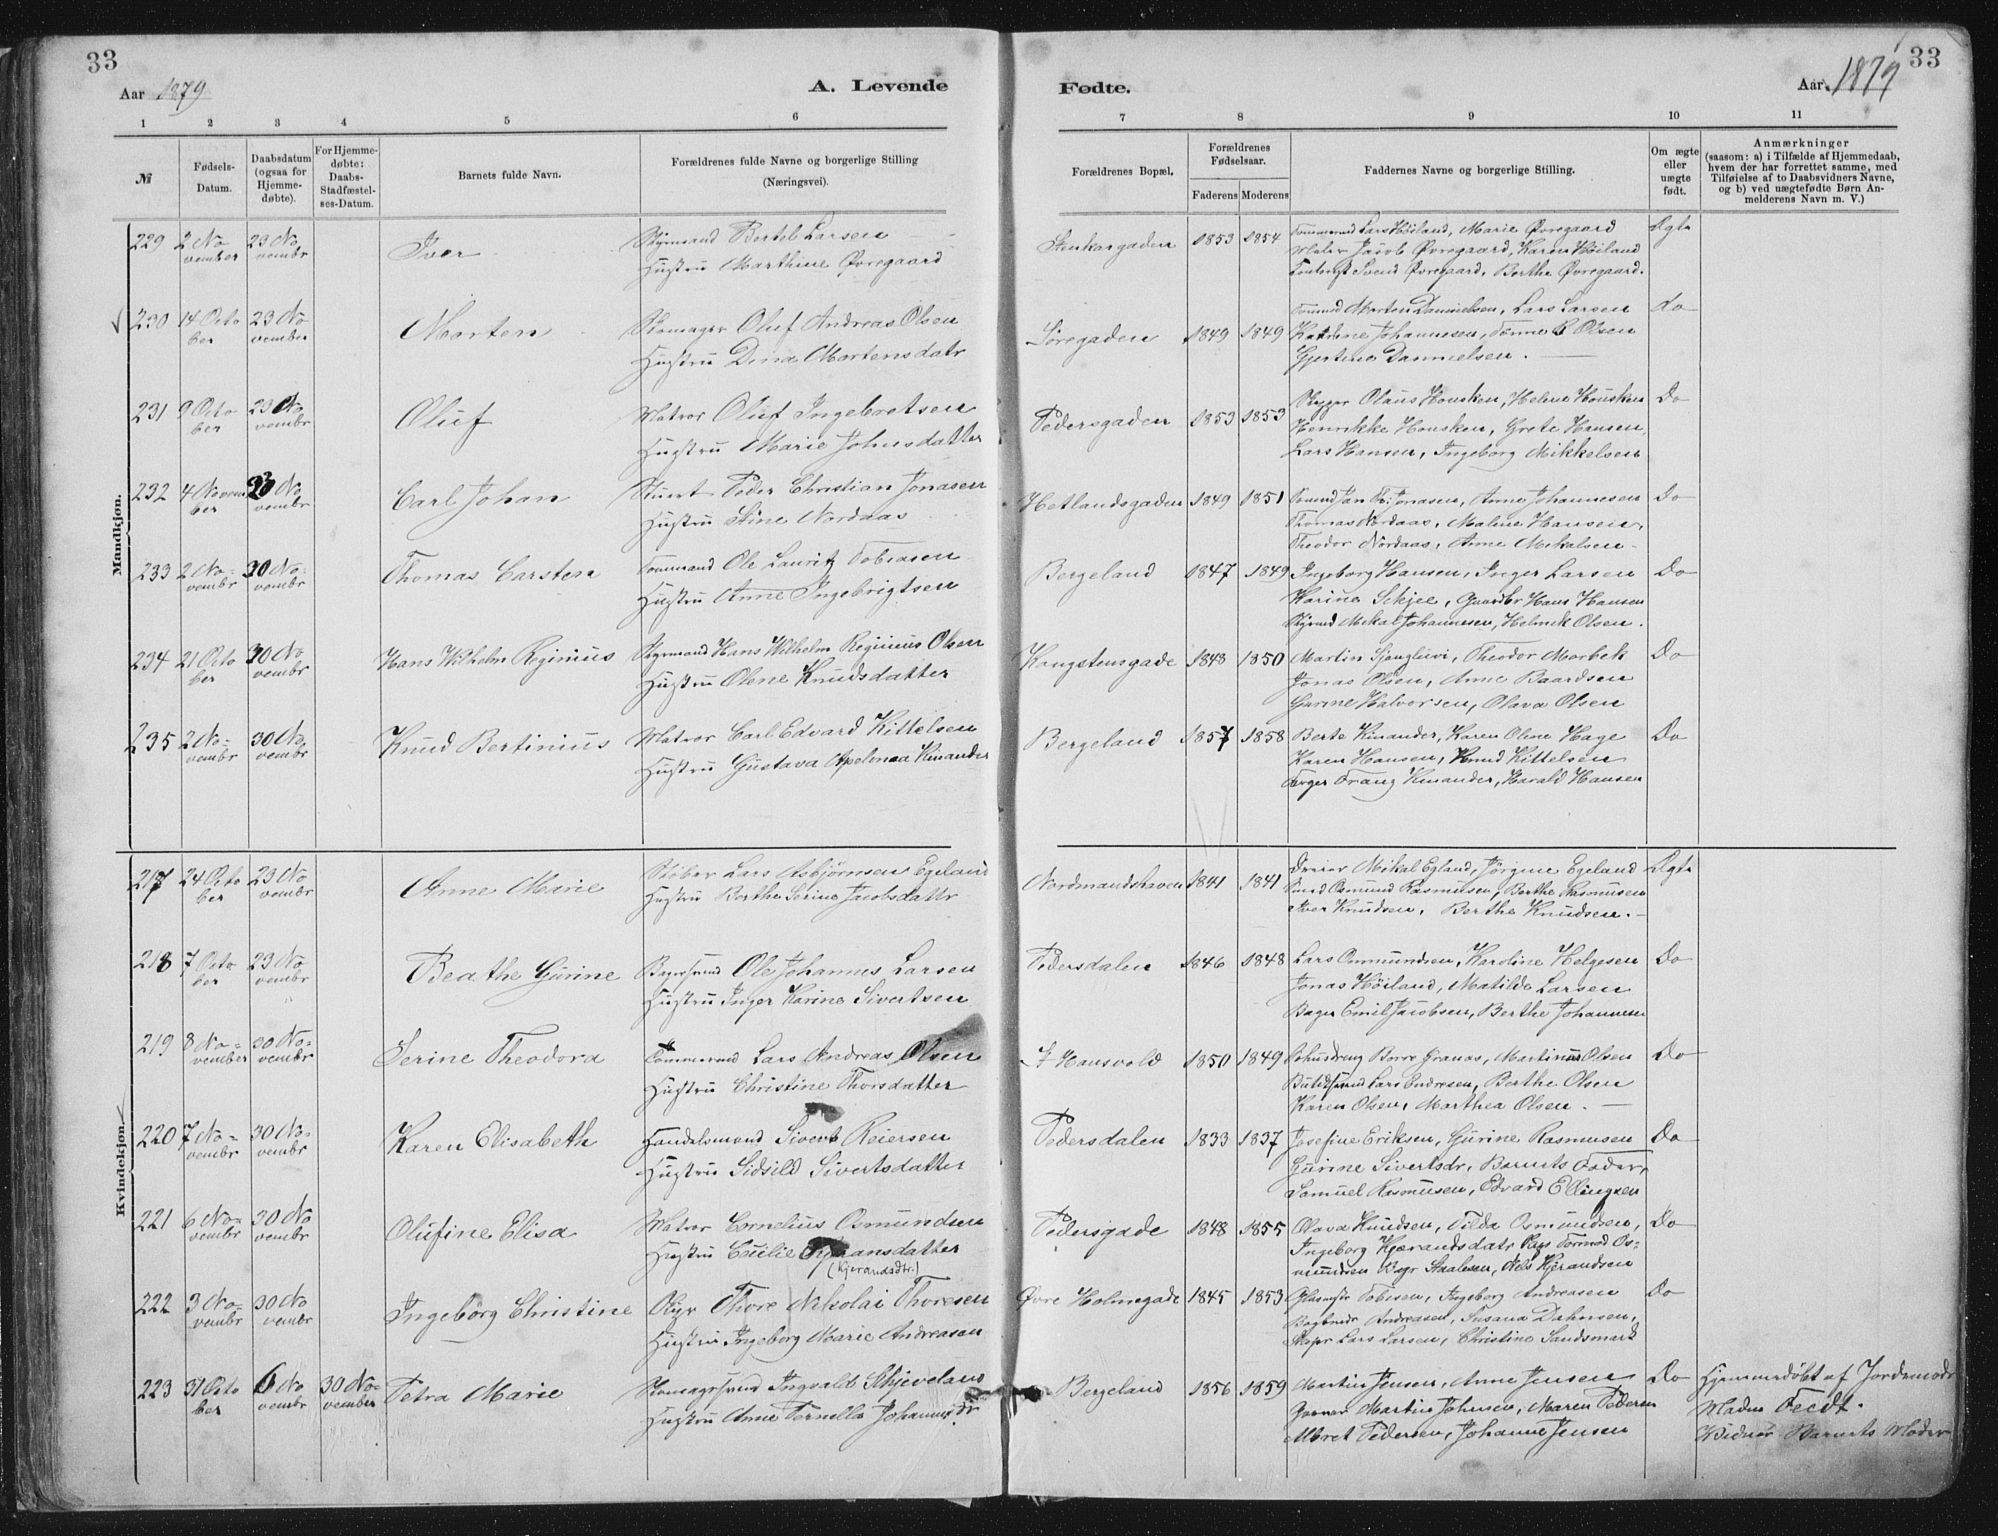 33
33
Aar 1879
A. Levende
Fødte.
Aar 1879
1 2 3 4 5 6
7 8 9 10 11
№
Fødsels-Datum.
Daabsdatum (ogsaa for Hjemme-døbte).
For Hjemme-døbte: Daabs-Stadfæstel-ses-Datum.
Barnets fulde Navn.
Forældrenes fulde Navne og borgerlige Stilling (Næringsvei).
Forældrenes Bopæl.
Forældrenes Fødselsaar.
Faderens Moderens
Faddernes Navne og borgerlige Stilling.
Om ægte eller uægte født.
Anmærkninger
(saasom: a) i Tilfælde af Hjemmedaab,
hvem der har forrettet samme, med
Tilføielse af to Daabsvidners Navne,
og b) ved uægtefødte Børn An-
melderens Navn m. V.)
Mandkjøn.
229 2 November 23 Novembr Iver
Styrmand Bertel Larsen
Hustru Marthine Øvregaard
Stenkargaden 1853 1854
Lars Høiland, Marie Øvregaard
Maler Jacob Øvregaard, Karen Høiland
Svend Øvregaard, Berthe Øvregaard.
Ægte
230 14 October 23 November Morten
Skomager Oluf Andreas Olsen
Hustru Dina Mortensdatr
Søregaden 1849 1849
Morten Danielsen, Lars Larsen
Kathrine Johannesen, Tønne B Olsen
Gjertine Dannielsen.
Do
231 9 October 23 Novembr Oluf
Matros Oluf Ingebretsen
Hustru Marie Johnsdatter
Pedersgaden 1853 1853
Olaus Housken, Helene Housken
Henrikke Housken, Grete Hansen,
Lars Hansen, Ingeborg Mikkelsen
Do
232 4 November 23 Novembr Carl Johan
Stuert Peder Christian Jonasen
Hustru Stine Nordaas
Hetlandsgaden 1849 1851
Jan Fr: Jonasen, Anne Johannesen
Thomas Nordaas, Malene Hansen,
Theodor Nordaas, Anne Mikalsen
Do
233 2 Novembr 30 Novembr Thomas Carsten
Tømmermand Ole Lauritz Tobiasen
Hustru Anne Ingebrigtsen
Bergeland 1847 1849
Ingeborg Hansen, Inger Larsen
Karine Schjee, Hans Hansen
Mikal Johannesen, Helmik Olsen.
Do
234 21 October 30 Novembr Hans Wilhelm Reginius
Styrmand Hans Wilhelm Reginius Olsen
Hustru Olene Knudsdatter
Kongstensgade 1848 1850
Martin, Theodor Morbek
Jonas Olsen, Anne Baardsen
Gurine Halvorsen, Olava Olsen
Do
235 2 Novembr 30 Novembr Knud Bertinius
Matros Carl Edvard Kittelsen
Hustru Gustava Apelonaa Kinander
Bergeland 1857 1858
Berte Kinander, Karen Olene Hage
Karen Hansen, Knud Kittelsen
Farger Frang Kinander, Harald Hansen
Do
Kvindekjøn.
217 24 October 23 Novembr Anne Marie
Støber Lars Asbjørnsen Egeland
Hustru Berthe Serine Jacobsdattr
Nordmandshaven 1841 1841
Dreier Mikal Egland, Jørgine Egeland
Osmund Rasmusen, Berthe Rasmusen
Iver Knudsen, Berthe Knudsen.
Ægte
218 7 October 23 Novembr Beathe Gurine
Bagersvend Ole Johannes Larsen
Hustru Inger Karine Sivertsen
Pedersdalen 1846 1848
Lars Osmundsen, Karoline Helgesen
Jonas Høiland, Matilde Larsen
Bager Emil Jacobsen, Berthe Johannesen
Do
219 8 November 30 Novembr Serine Theodora
Tømmermand Lars Andreas Olsen
Hustru Christine Thorsdatter
St Hansvold 1850 1849
Borre Granas, Martinus Olsen
Lars Endresen, Berthe Olsen
Karen Olsen, Marthea Olsen.
Do
220 7 Novembr 30 Novembr Karen Elisabeth
Handelsmand Sivert Reiersen
Hustru Sidsild Sivertsdatter
Pedersdalen 1833 1837
Josefine Eriksen, Gurine Rasmusen
Gurine Sivertsdr, Barnets Fader,
Samuel Rasmusen, Edvard Ellingsen
Do
221 6 Novembr 30 Novembr Olufine Elisa
Matros Cornelius Osmundsen
Hustru Cecilie
(Kjerandsdtr.)
Pedersgade 1848 1855
Olava Knudsen, Tilda Osmundsen,
Ingeborg Kjærandsdatr Tormod Os-
mundsen Staalesen, Nils Kjærandsen
Do
222 3 Novembr 30 Novembr Ingeborg Christine
Thore Nikolai Thoresen
Hustru Ingeborg Marie Andreasen
Øvre Holmegade 1845 1853
Tobisen, Ingeborg Andreasen
Andreasen, Susana Dahmsen,
Lars Larsen, Christine Sandsmark
Do
223 31 October 6 Novembr 30 November Petra Marie
Skomagersvend Ingvald Skjeveland
Hustru Anne Pernille Johannesdr
Bergeland 1856 1859
Martin Jensen, Anne Jensen
Martin Johnsen, Maren Pedersen
Albret Pedersen, Johanne Jensen
Do
Hjemmedøbt af Jordemodr
Madm Feedt.
Vidner Barnets Moder